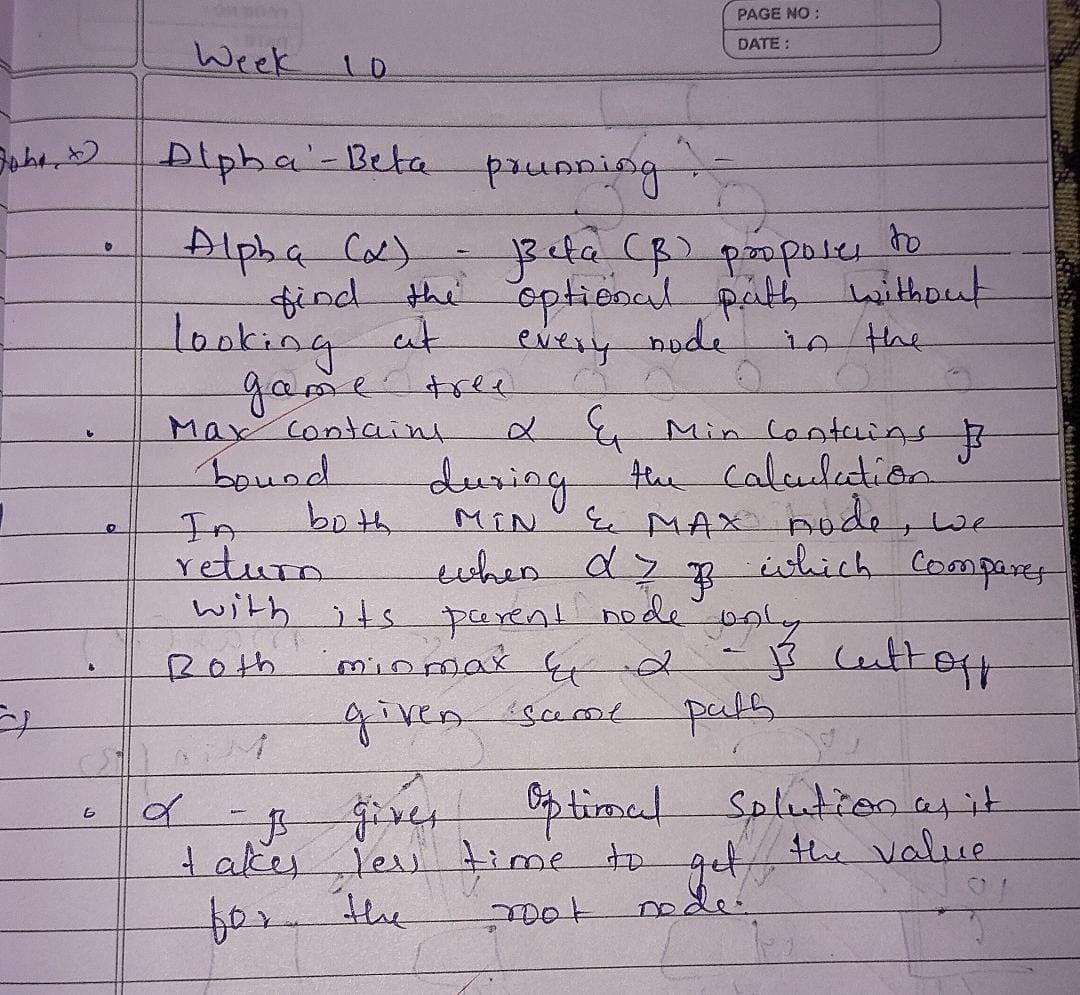 PAGE NO :
DATE :
Week 10
Alpha - Beta prunning :-
• Alpha (α) - Beta (β) proposes to
find the optional path without
looking at every node in the
game tree
• Max contains α & Min contains β
bound during the calculation
• In both MIN & MAX node, we
return when α ≥ β which compares
with its parent node only
• Both minmax & α - β cutt off
given same path
• α - β gives Optimal Solution as it
takes less time to get the value
for the root node.